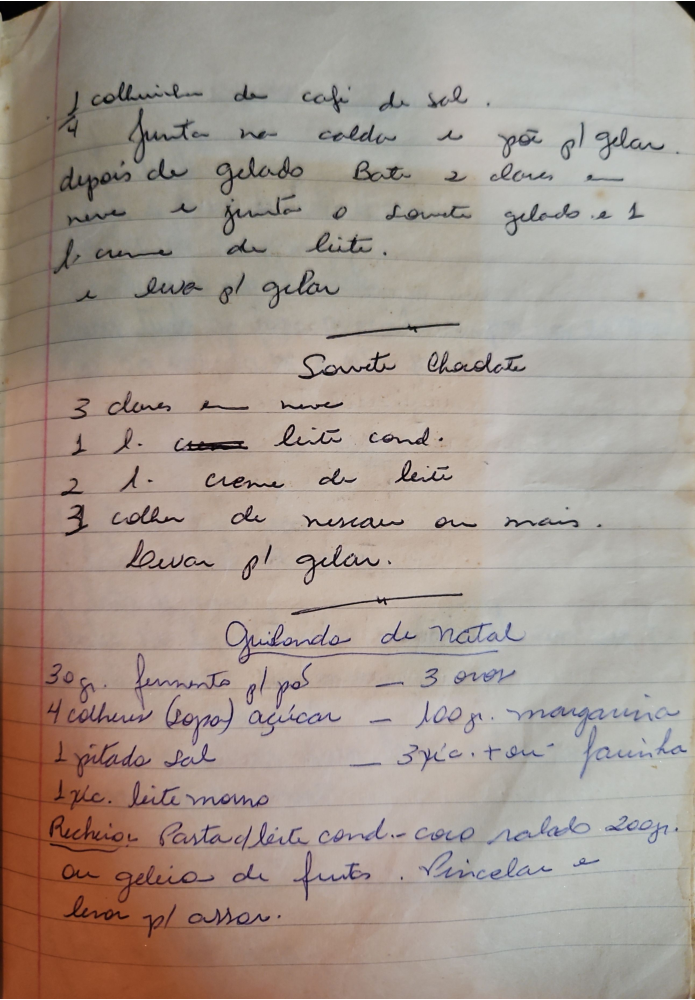 1/4 colherinha de café de sal.
Junta na calda e põe p/ gelar.
depois de gelado Bate 2 claras em
neve e junta o sorvete gelado e 1
l. creme de leite.
e leva p/ gelar
Sorvete Chocolate
3 claras em neve
1 l. leite cond.
2 l. creme de leite
colher de nescau ou mais.
Levar p/ gelar.
Guilanda de Natal
30gr. fermento p/ pão — 3 ovos
4 colheres (sopa) açúcar — 100gr. margarina
1 pitada sal — 3 xíc. + ou - farinha
1 xíc. leite morno
Recheio: Pasta c/ leite cond. - coco ralado 200gr.
ou geleia de frutas. Pincelar e
levar p/ assar.